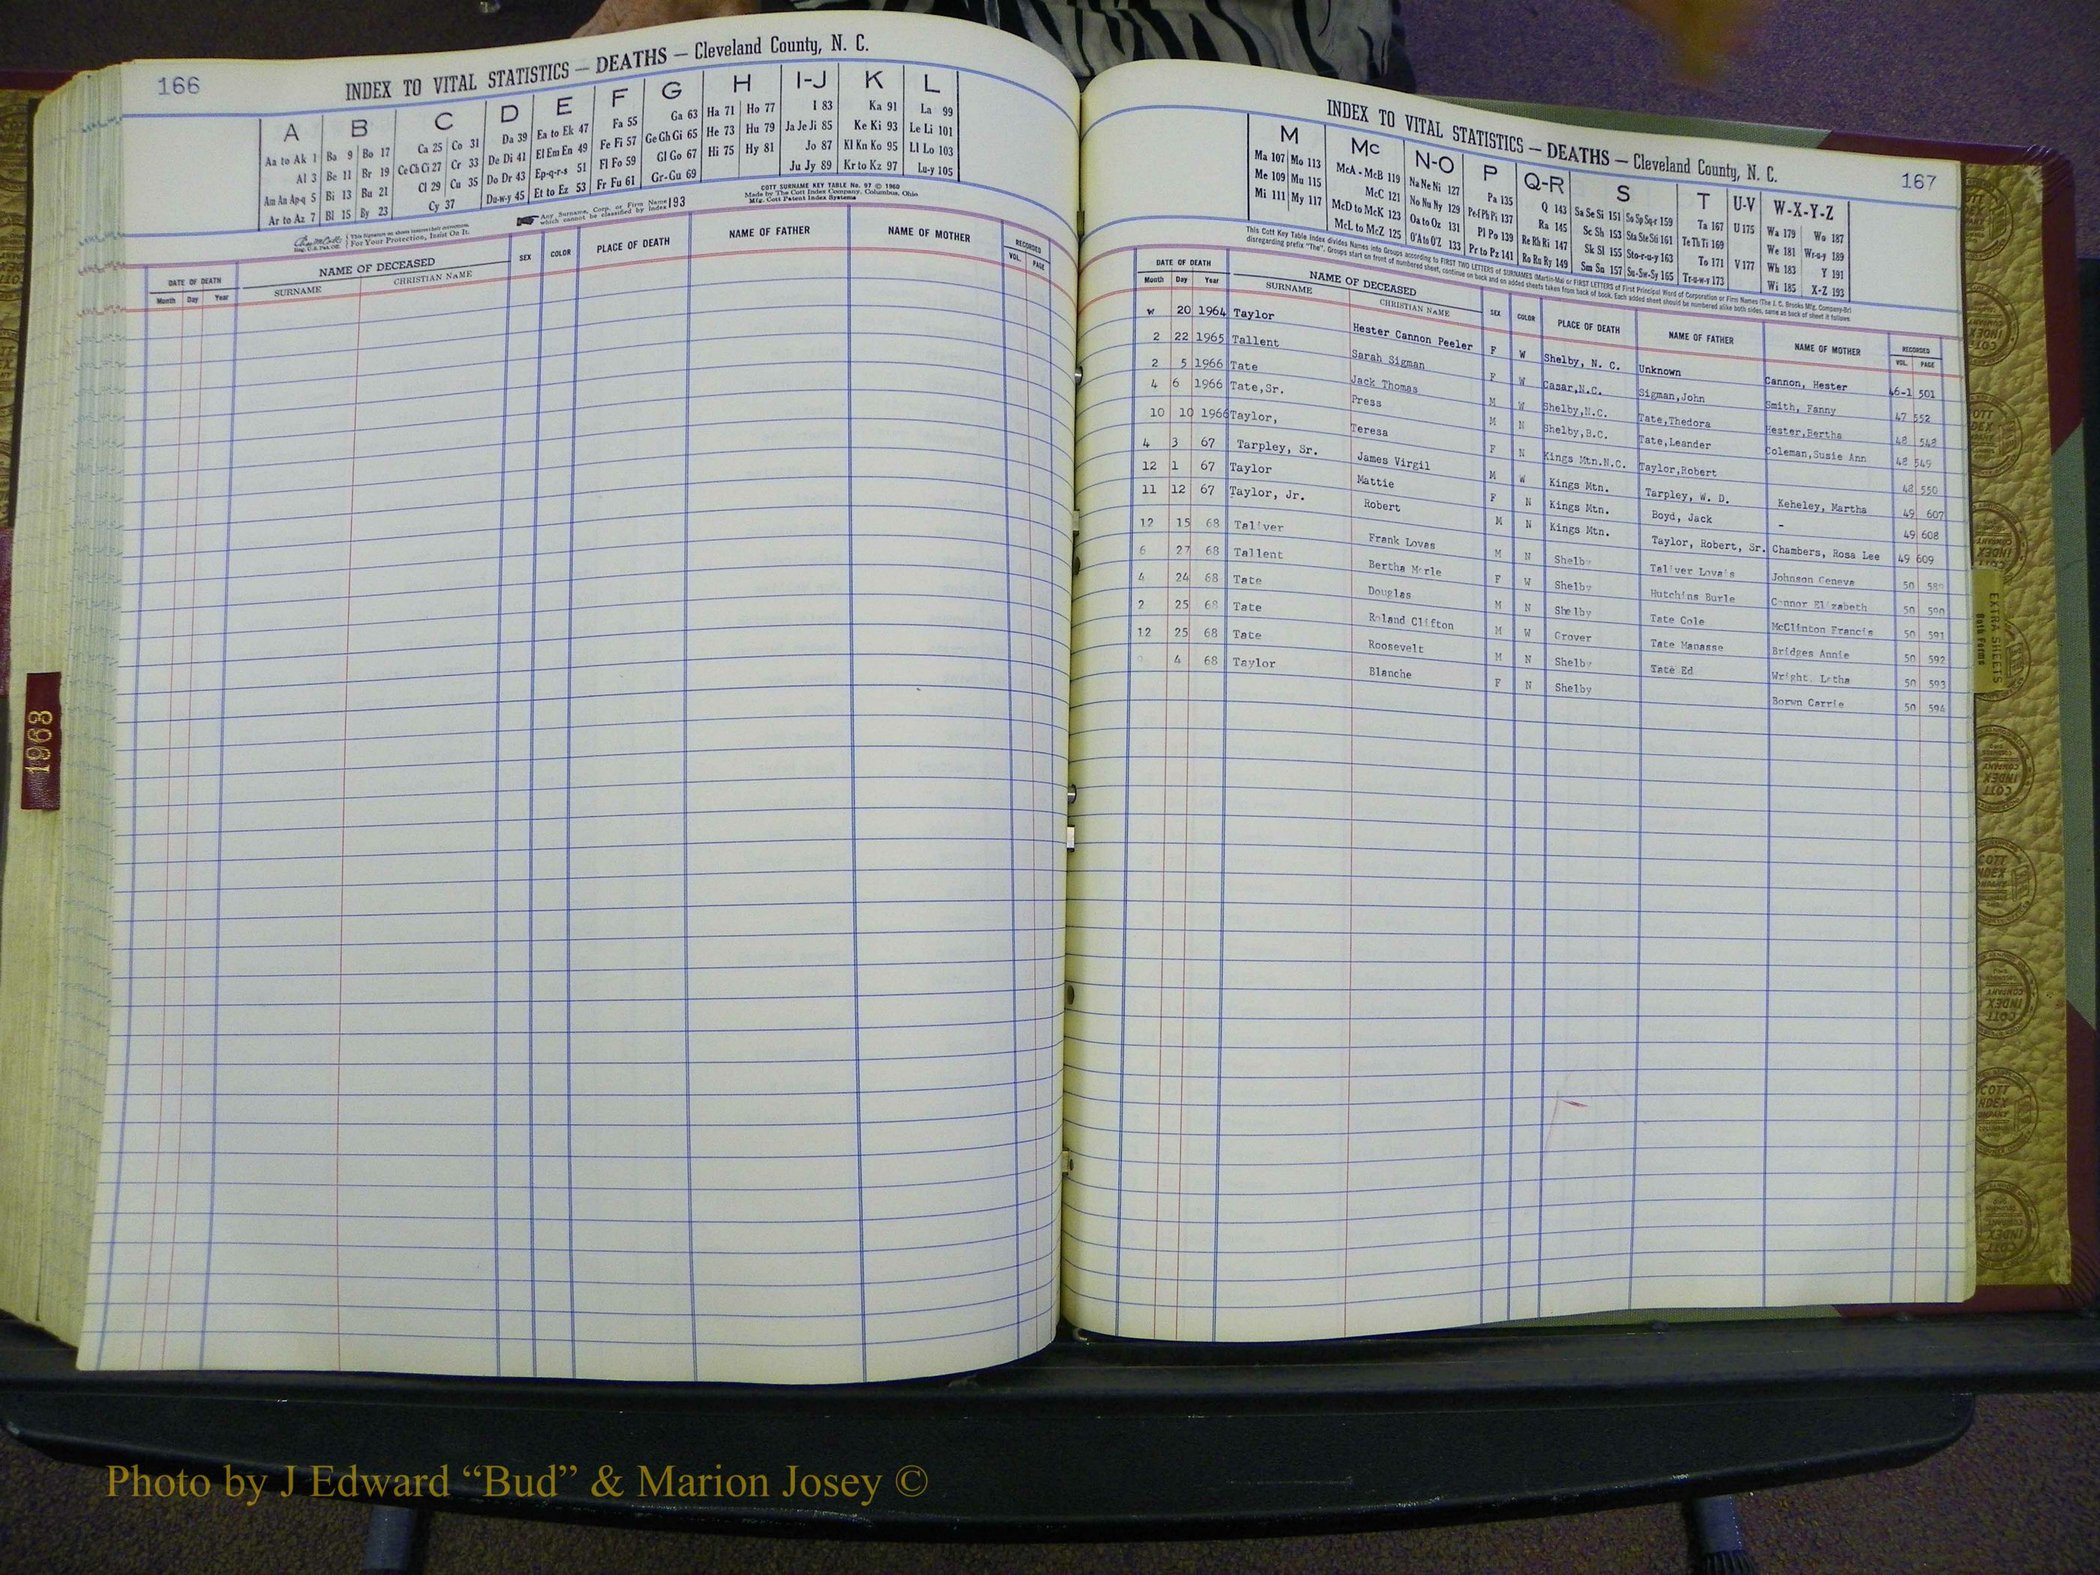 166
INDEX TO VITAL STATISTICS — DEATHS — Cleveland County, N. C.
A B C D E F G H I-J K L
Aa to Ak 1 Ba 9 Bo 17 Ca 25 Co 31 Da 39 Ea to Ek 47 Fa 55 Ga 63 Ha 71 Ho 77 I 83 Ka 91 La 99
Al 3 Be 11 Br 19 Ce Ch Ci 27 Cr 33 De Di 41 El Em En 49 Fe Fi 57 Ge Gh Gi 65 He 73 Hu 79 Ja Je Ji 85 Ke Ki 93 Le Li 101
Am An Ap-q 5 Bi 13 Bu 21 Cl 29 Cu 35 Do Dr 43 Ep-q-r-s 51 Fl Fo 59 Gl Go 67 Hi 75 Hy 81 Jo 87 Kl Kn Ko 95 Ll Lo 103
Ar to Az 7 Bl 15 By 23 Cy 37 Du-w-y 45 Et to Ez 53 Fr Fu 61 Gr-Gu 69 Ju Jy 89 Kr to Kz 97 Lu-y 105
COTT SURNAME KEY TABLE No. 97 © 1960
Made by The Cott Index Company, Columbus, Ohio
Mfg. Cott Patent Index Systems
This Signature on sheets insures their correctness.
For Your Protection, Insist On It.
Any Surname, Corp. or Firm Name which cannot be classified by Index 193
DATE OF DEATH NAME OF DECEASED SEX COLOR PLACE OF DEATH NAME OF FATHER NAME OF MOTHER RECORDED
Month Day Year SURNAME CHRISTIAN NAME VOL. PAGE
1963
167
INDEX TO VITAL STATISTICS — DEATHS — Cleveland County, N. C.
M Mc N-O P Q-R S T U-V W-X-Y-Z
Ma 107 Mo 113 McA - McB 119 Na Ne Ni 127 Pa 135 Q 143 Sa Se Si 151 So Sp Sq-r 159 Ta 167 U 175 Wa 179 Wo 187
Me 109 Mu 115 McC 121 No Nu Ny 129 Pe-f Ph Pi 137 Ra 145 Sc Sh 153 Sta Ste Sti 161 Te Th Ti 169 We 181 Wr-u-y 189
Mi 111 My 117 McD to McK 123 Oa to Oz 131 Pl Po 139 Re Rh Ri 147 Sk Sl 155 Sto-r-u-y 163 To 171 V 177 Wh 183 Y 191
McL to McZ 125 O'A to O'Z 133 Pr to Pz 141 Ro Ru Ry 149 Sm Sn 157 Su-Sw-Sy 165 Tr-u-w-y 173 Wi 185 X-Z 193
This Cott Key Table Index divides Names into Groups according to FIRST TWO LETTERS of SURNAMES (Martin-Ma) or FIRST LETTERS of First Principal Word of Corporation or Firm Names (The J. C. Brooks Mfg. Company-Br)
disregarding prefix "The". Groups start on front of numbered sheet, continue on back and on added sheets taken from back of book. Each added sheet should be numbered alike both sides, same as back of sheet it follows.
DATE OF DEATH NAME OF DECEASED SEX COLOR PLACE OF DEATH NAME OF FATHER NAME OF MOTHER RECORDED
Month Day Year SURNAME CHRISTIAN NAME VOL. PAGE
w 20 1964 Taylor Hester Cannon Peeler F W Shelby, N. C. Unknown Cannon, Hester 46-1 501
2 22 1965 Tallent Sarah Sigman F W Casar,N.C. Sigman,John Smith, Fanny 47 552
2 5 1966 Tate Jack Thomas M W Shelby,N.C. Tate,Thedora Hester,Bertha 48 548
4 6 1966 Tate,Sr. Press M N Shelby,B.C. Tate,Leander Coleman,Susie Ann 48 549
10 10 1966 Taylor, Teresa F N Kings Mtn.N.C. Taylor,Robert 48 550
4 3 67 Tarpley, Sr. James Virgil M W Kings Mtn. Tarpley, W. D. Keheley, Martha 49 607
12 1 67 Taylor Mattie F N Kings Mtn. Boyd, Jack - 49 608
11 12 67 Taylor, Jr. Robert M N Kings Mtn. Taylor, Robert, Sr. Chambers, Rosa Lee 49 609
12 15 68 Taliver Frank Lovas M N Shelby Taliver Lova's Johnson Geneva 50
6 27 68 Tallent Bertha Merle F W Shelby Hutchins Burle Connor Elizabeth 50 590
4 24 68 Tate Douglas M N Shelby Tate Cole McClinton Francis 50 591
2 25 68 Tate Roland Clifton M W Grover Tate Manasse Bridges Annie 50 592
12 25 68 Tate Roosevelt M N Shelby Tate Ed Wright, Letha 50 593
4 68 Taylor Blanche F N Shelby Borwn Carrie 50 594
EXTRA SHEETS
Both Forms
Photo by J Edward “Bud” & Marion Josey ©